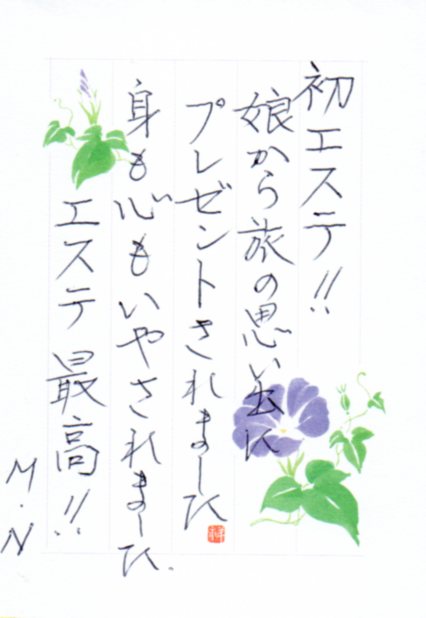 初エステ!!
娘から旅の思い出に
プレゼントされました
身も心もいやされました.
エステ 最高!!
M・N